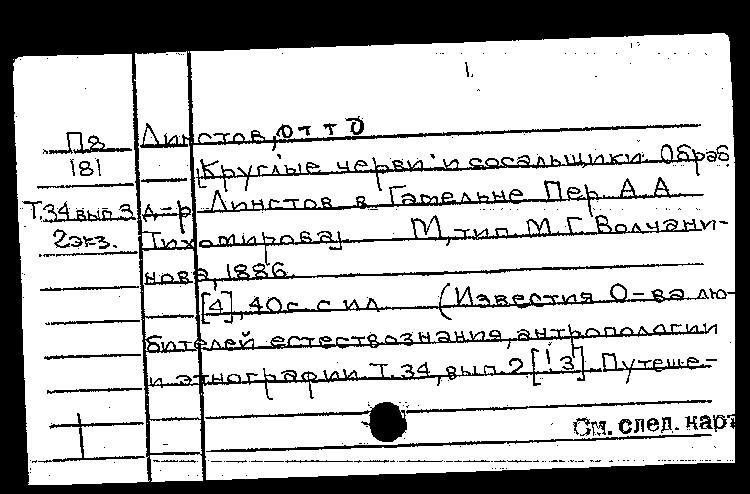 П8 Линстов, ОТТО
181 [Круглые черви и сосальщики. Обраб
Т.34 вып.3 д-р Линстов в Гамельне Пер. А А
2экз. Тихомирова] М, тип М Г Волчани-
нова, 1886.
[4], 40с. с ил (Известия О-ва лю-
бителей естествознания, антропологии
и этнографии Т.34, вып. 2 [! 3]. Путеше-
См. след. карт